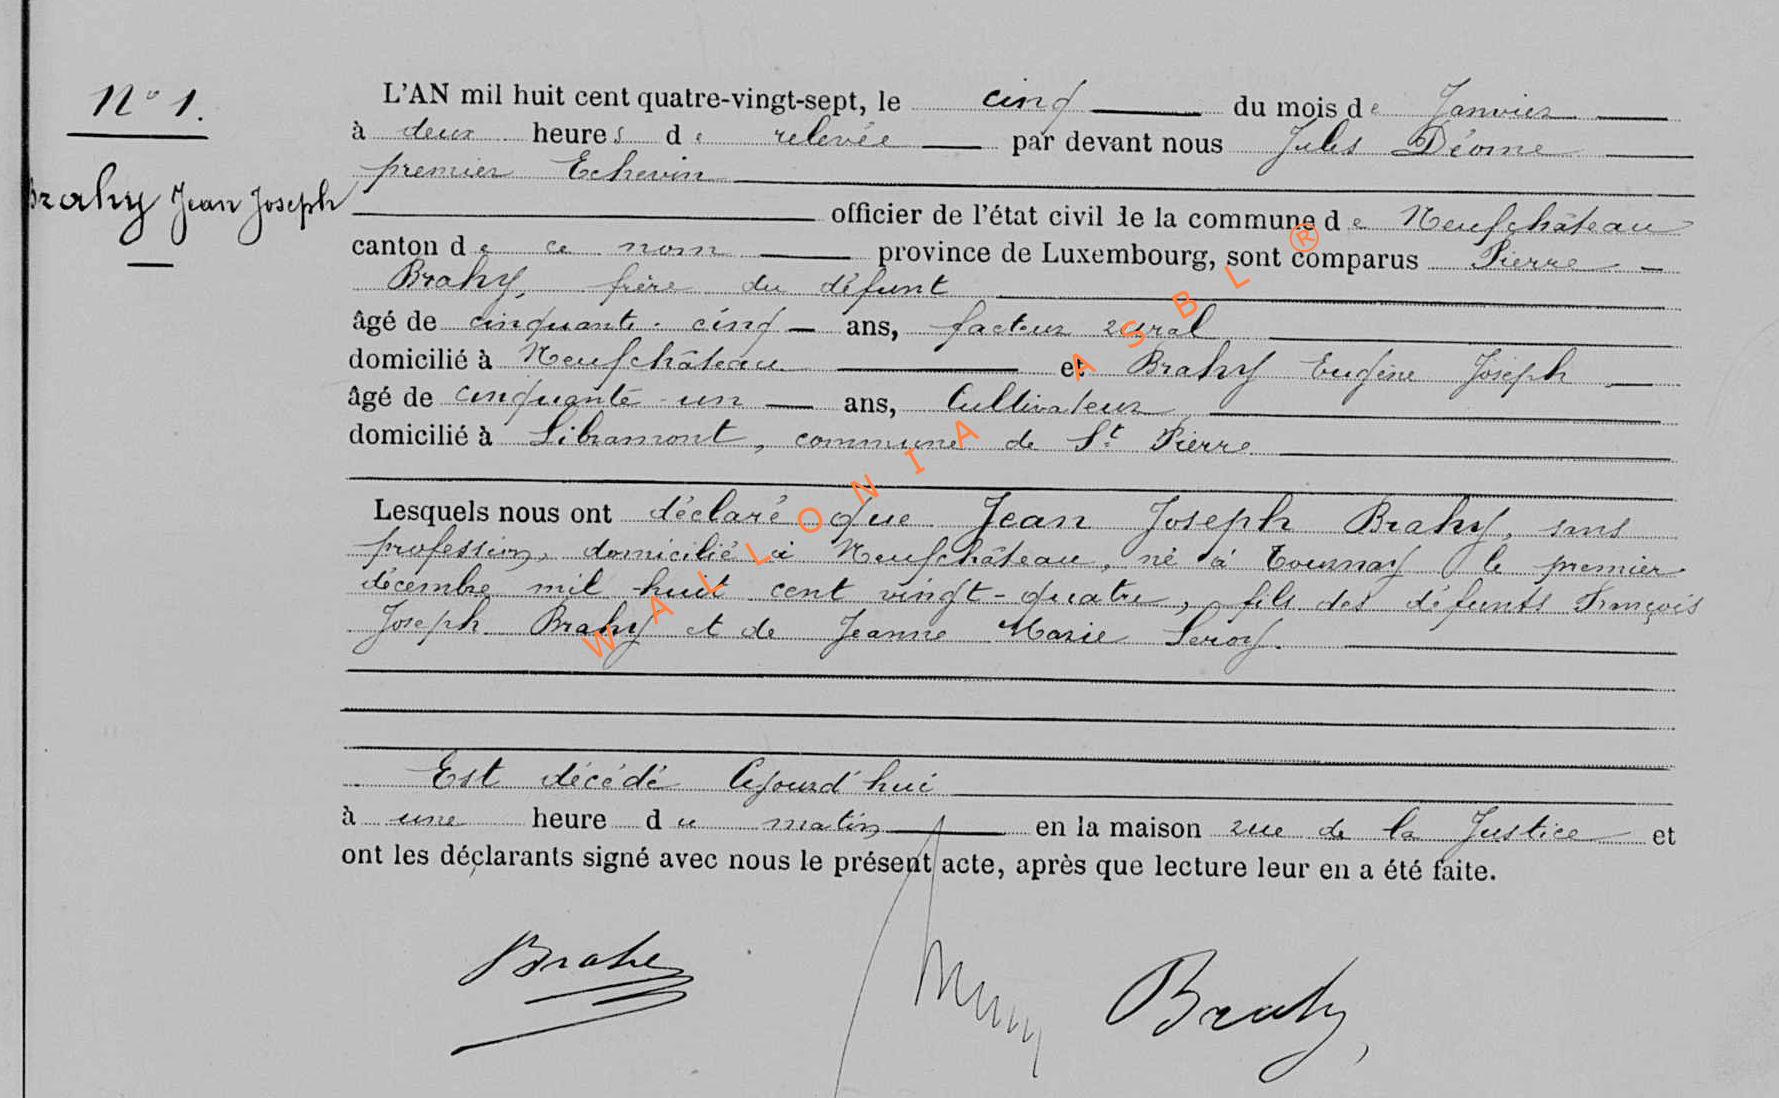 N° 1.
Brahy Jean Joseph
L'AN mil huit cent quatre-vingt-sept, le cinq du mois de Janvier
à deux heures de relevée par devant nous Jules Déome
premier Echevin
officier de l'état civil de la commune de Neufchâteau
canton de ce nom province de Luxembourg, sont comparus Pierre
Brahy, frère du défunt
âgé de cinquante-cinq ans, facteur rural
domicilié à Neufchâteau et Brahy Eugène Joseph
âgé de cinquante-un ans, Cultivateur
domicilié à Libramont, commune de St Pierre
Lesquels nous ont déclaré que Jean Joseph Brahy, sans
profession, domicilié à Neufchâteau, né à Tournay le premier
décembre mil-huit cent vingt-quatre, fils des défunts François
Joseph Brahy et de Jeanne Marie Leroy.
Est décédé Cejourd'hui
à une heure du matin en la maison rue de la Justice et
ont les déclarants signé avec nous le présent acte, après que lecture leur en a été faite.
Brahy
Brahy,
WALLONIA ASBL ®